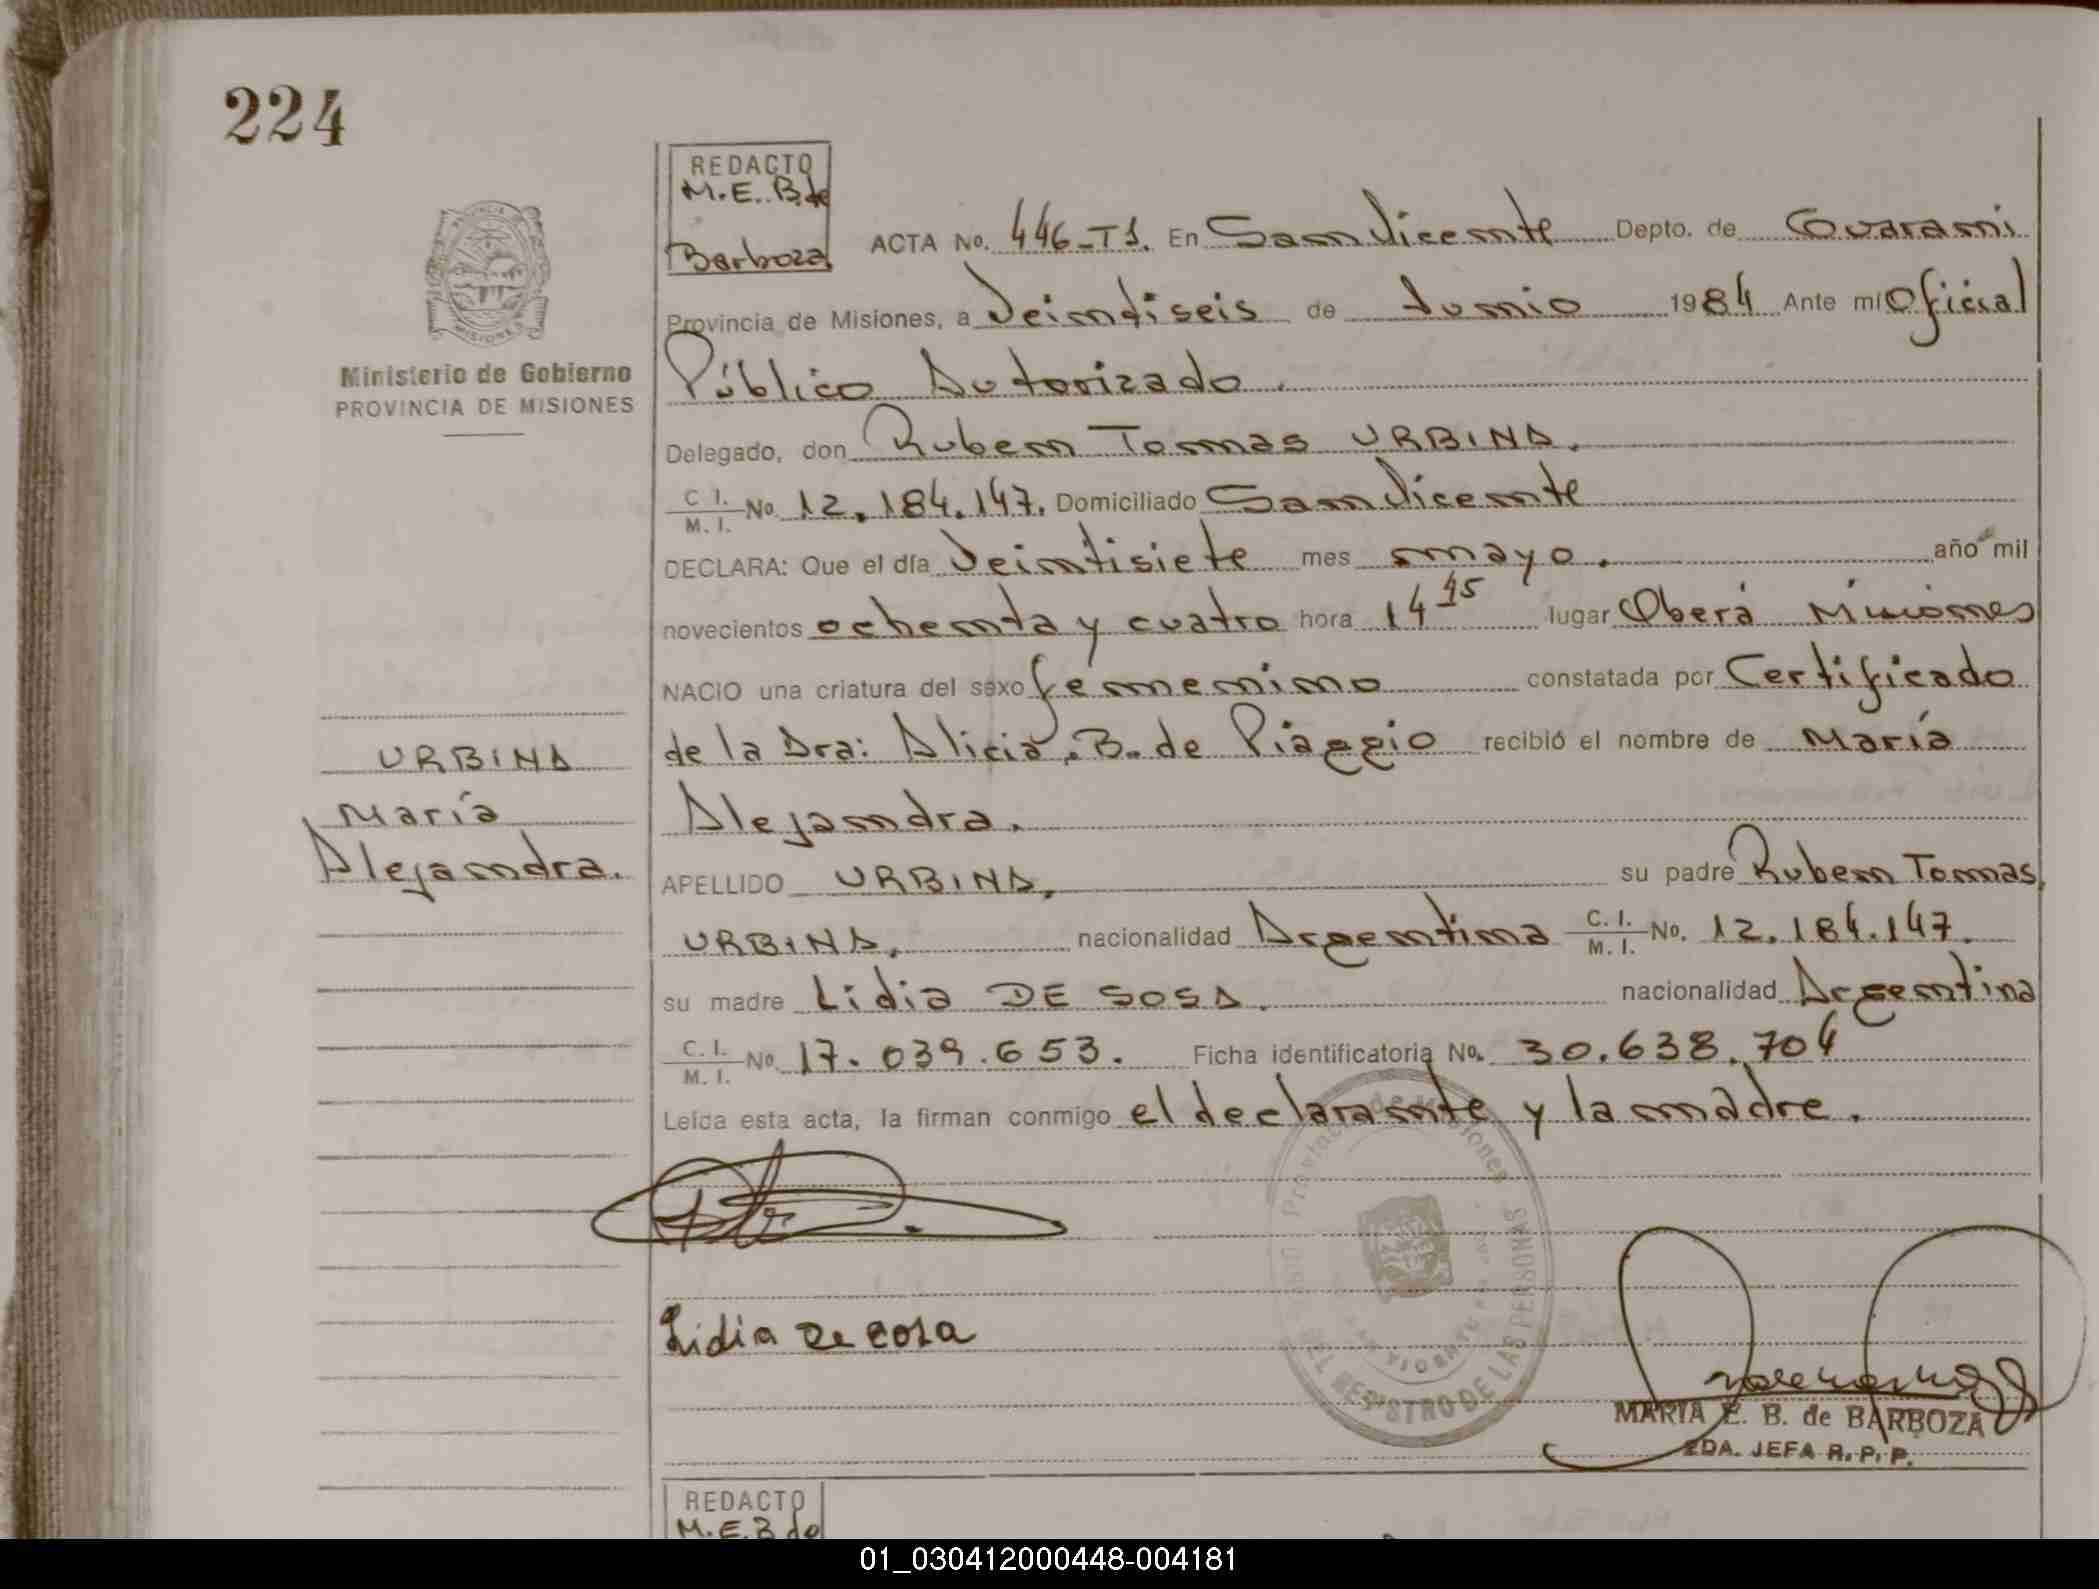 224
REDACTO
M.E.B. de
Barboza
ACTA No. 446-T1. En San Vicente Depto. de Guarani
Provincia de Misiones, a Veintiseis de Junio 1984 Ante mí Oficial
Público Autorizado.
Delegado, don Ruben Tomas URBINA.
C I. M. I. No 12.184.147. Domiciliado San Vicente
DECLARA: Que el día Veintisiete mes mayo. año mil
novecientos ochenta y cuatro hora 14 45 lugar Oberá Misiones
NACIO una criatura del sexo femenino constatada por Certificado
de la Dra: Alicia B. de Piaggio recibió el nombre de María
Alejandra.
APELLIDO URBINA, su padre Ruben Tomas
URBINA, nacionalidad Argentina C. I. M. I. No. 12.184.147.
su madre Lidia DE SOSA. nacionalidad Argentina
C. I. M. I. No. 17.039.653. Ficha identificatoria No. 30.638.704
Leída esta acta, la firman conmigo el declarante y la madre.
Ministerio de Gobierno
PROVINCIA DE MISIONES
URBINA
María
Alejandra.
Lidia De Sosa
Provincia de Misiones
DEL REGISTRO DE LAS PERSONAS
MARIA E. B. de BARBOZA
2DA. JEFA R. P. P.
REDACTO
M.E.B de
01_030412000448-004181